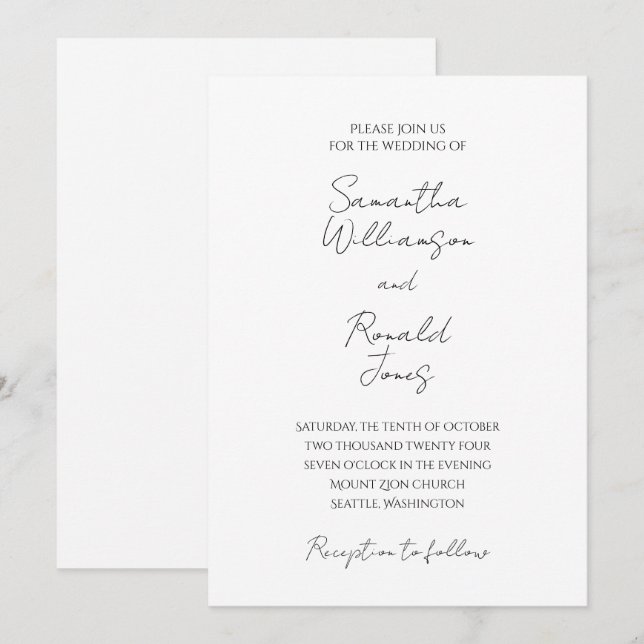 Please Join us
for the wedding of
Samantha
Williamson
and
Ronald
Jones
Saturday, the tenth of October
two thousand twenty four
seven o'clock in the evening
Mount Zion Church
Seattle, Washington
Reception to follow